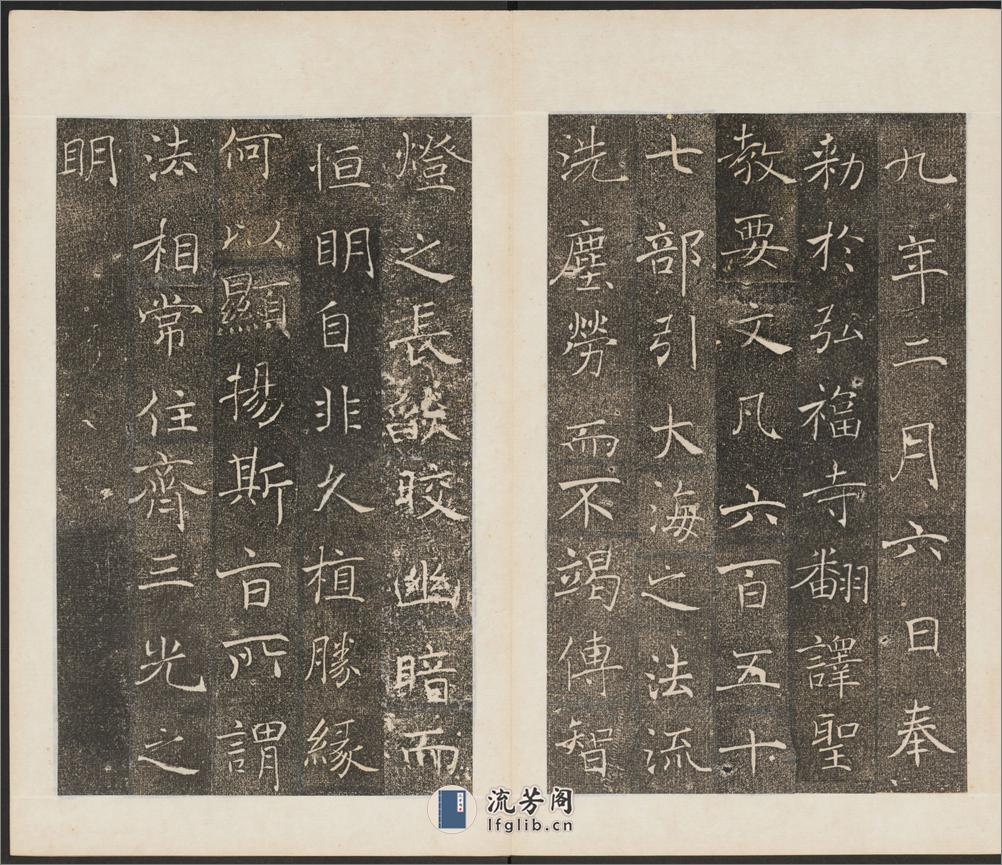 九年二月六日奉
勅於弘福寺翻譯聖
教要文凡六百五十
七部引大海之法流
洗塵勞而不竭傳智
燈之長皎幽暗而
恒明自非久植勝緣
何以顯揚斯旨所謂
法相常住齊三光之
明
流芳阁
lfglib.cn